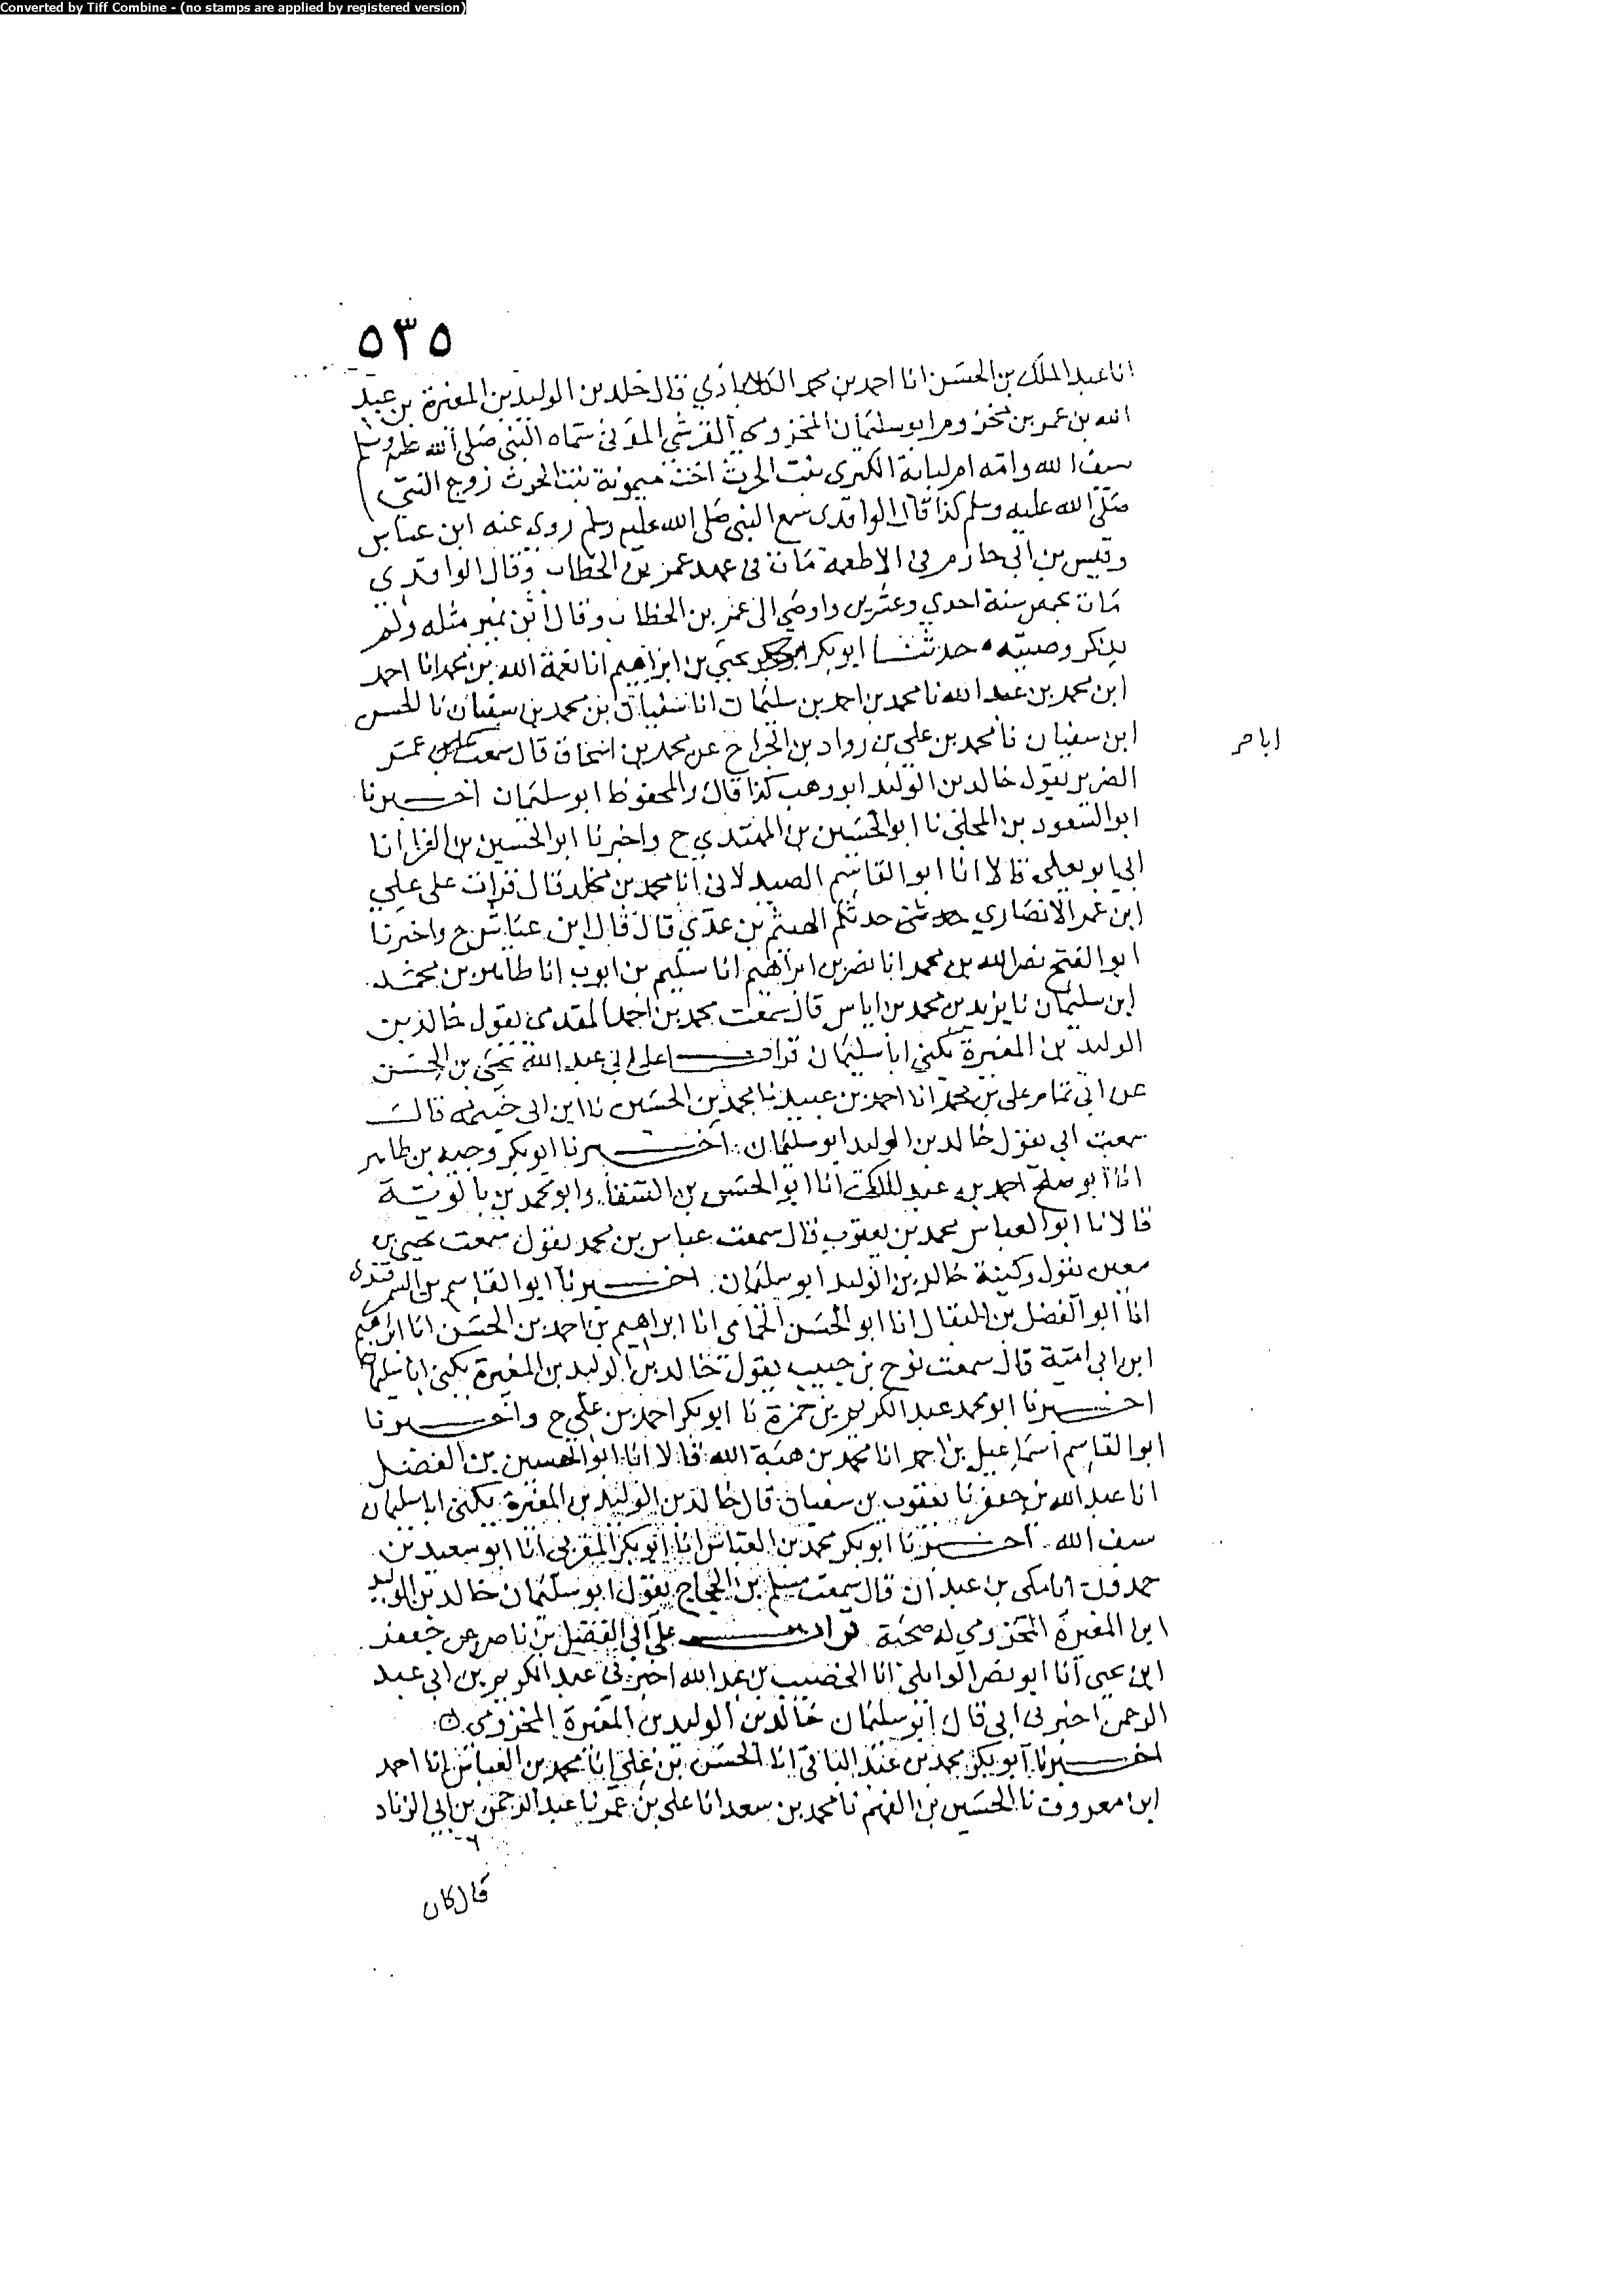 Converted by Tiff Combine - (no stamps are applied by registered version)
٥٣٥
انا عبد الملك بن الحسن انا احمد بن محمد الكلاباذي قال خلد بن الوليد بن المغيرة بن عبد
الله بن عمر بن مخزوم ابو سليمان المخزومي القرشي المدني سماه النبي صلى الله عليه وسلم
سيف الله وامه ام لبابة الكبرى بنت الحرث اخت ميمونة بنت الحرث زوج النبي
صلى الله عليه وسلم كذا قال الواقدي سمع النبي صلى الله عليه وسلم روى عنه ابن عباس
وقيس بن ابي حازم في الاطعمة مات في عهد عمر بن الخطاب وقال الواقدي
مات بحمص سنة احدي وعشرين واوصي الى عمر بن الخطاب وقال ابن نمير مثله ولم
يذكر وصيته حدثنا ابو بكر يحيى بن ابراهيم انا نعمة الله بن محمد انا احمد
ابن محمد بن عبد الله نا محمد بن احمد بن سليمان انا سفيان بن محمد بن سفيان نا الحسن
ابن سفيان نا محمد بن علي بن رواد بن الجراح عن محمد بن اسحاق قال سمعت عمر
ابا حر
الضرير يقول خالد بن الوليد ابو وهب كذا قال والمحفوظ ابو سليمان اخبرنا
ابو السعود بن المجلي نا ابو الحسين بن المهتدي ح واخبرنا ابو الحسين بن الفرا انا
ابي ابو يعلى قالا انا ابو القاسم الصيدلاني انا محمد بن مخلد قال قرات على علي
ابن عمرو الانصاري حدثكم الهيثم بن عدي قال قال ابن عياش ح واخبرنا
ابو الفتح نصر الله بن محمد انا نصر بن ابراهيم انا سليم بن ايوب انا طاهر بن محمد
ابن سليمان نا يزيد بن محمد بن اياس قال سمعت محمد بن احمد المقدمي يقول خالد بن
الوليد بن المغيرة يكنى ابا سليمان قرات على ابي عبد الله يحيى بن الحسن
عن ابي تمام علي بن محمد انا احمد بن عبيد نا محمد بن الحسين نا ابن ابي خيثمة قال
سمعت ابي يقول خالد بن الوليد ابو سليمان اخبرنا ابو بكر وجيه بن طاهر
انا ابو صلح احمد بن عبد الملك انا ابو الحسن بن السقا وابو محمد بن بالوية
قالا نا ابو العباس محمد بن يعقوب قال سمعت عباس بن محمد يقول سمعت يحيى بن
معين يقول وكنية خالد بن الوليد ابو سليمان اخبرنا ابو القاسم بن السمرقندى
انا ابو الفضل بن البقال انا ابو الحسن الحمامي انا ابراهيم بن احمد بن الحسن انا ابراهيم
ابن ابي امية قال سمعت نوح بن حبيب يقول خالد بن الوليد بن المغيرة يكنى ابا سليمان
اخبرنا ابو محمد عبد الكريم بن حمزة نا ابو بكر احمد بن علي ح واخبرنا
ابو القاسم اسماعيل بن احمد انا محمد بن هبة الله قالا انا ابو الحسين بن الفضل
انا عبد الله بن جعفر نا يعقوب بن سفيان قال خالد بن الوليد بن المغيرة يكنى ابا سليمان
سيف الله اخبرنا ابو بكر محمد بن العباس انا ابو بكر المغربي انا ابو سعيد بن
حمدون انا مكي بن عبدان قال سمعت مسلم بن الحجاج يقول ابو سليمان خالد بن الوليد
ابن المغيرة المخزومي له صحبة قرات على ابي الفضل بن ناصر عن جعفر
ابن يحيى انا ابو نصر الوايلي انا الخصيب بن عبد الله اخبرني عبد الكريم بن ابي عبد
الرحمن اخبرني ابي قال ابو سليمان خالد بن الوليد بن المغيرة المخزومي
اخبرنا ابو بكر محمد بن عبد الباقي انا الحسن بن علي انا محمد بن العباس انا احمد
ابن معروف نا الحسين بن الفهم نا محمد بن سعد انا علي بن عمر نا عبد الرحمن بن ابي الزناد
قال كان